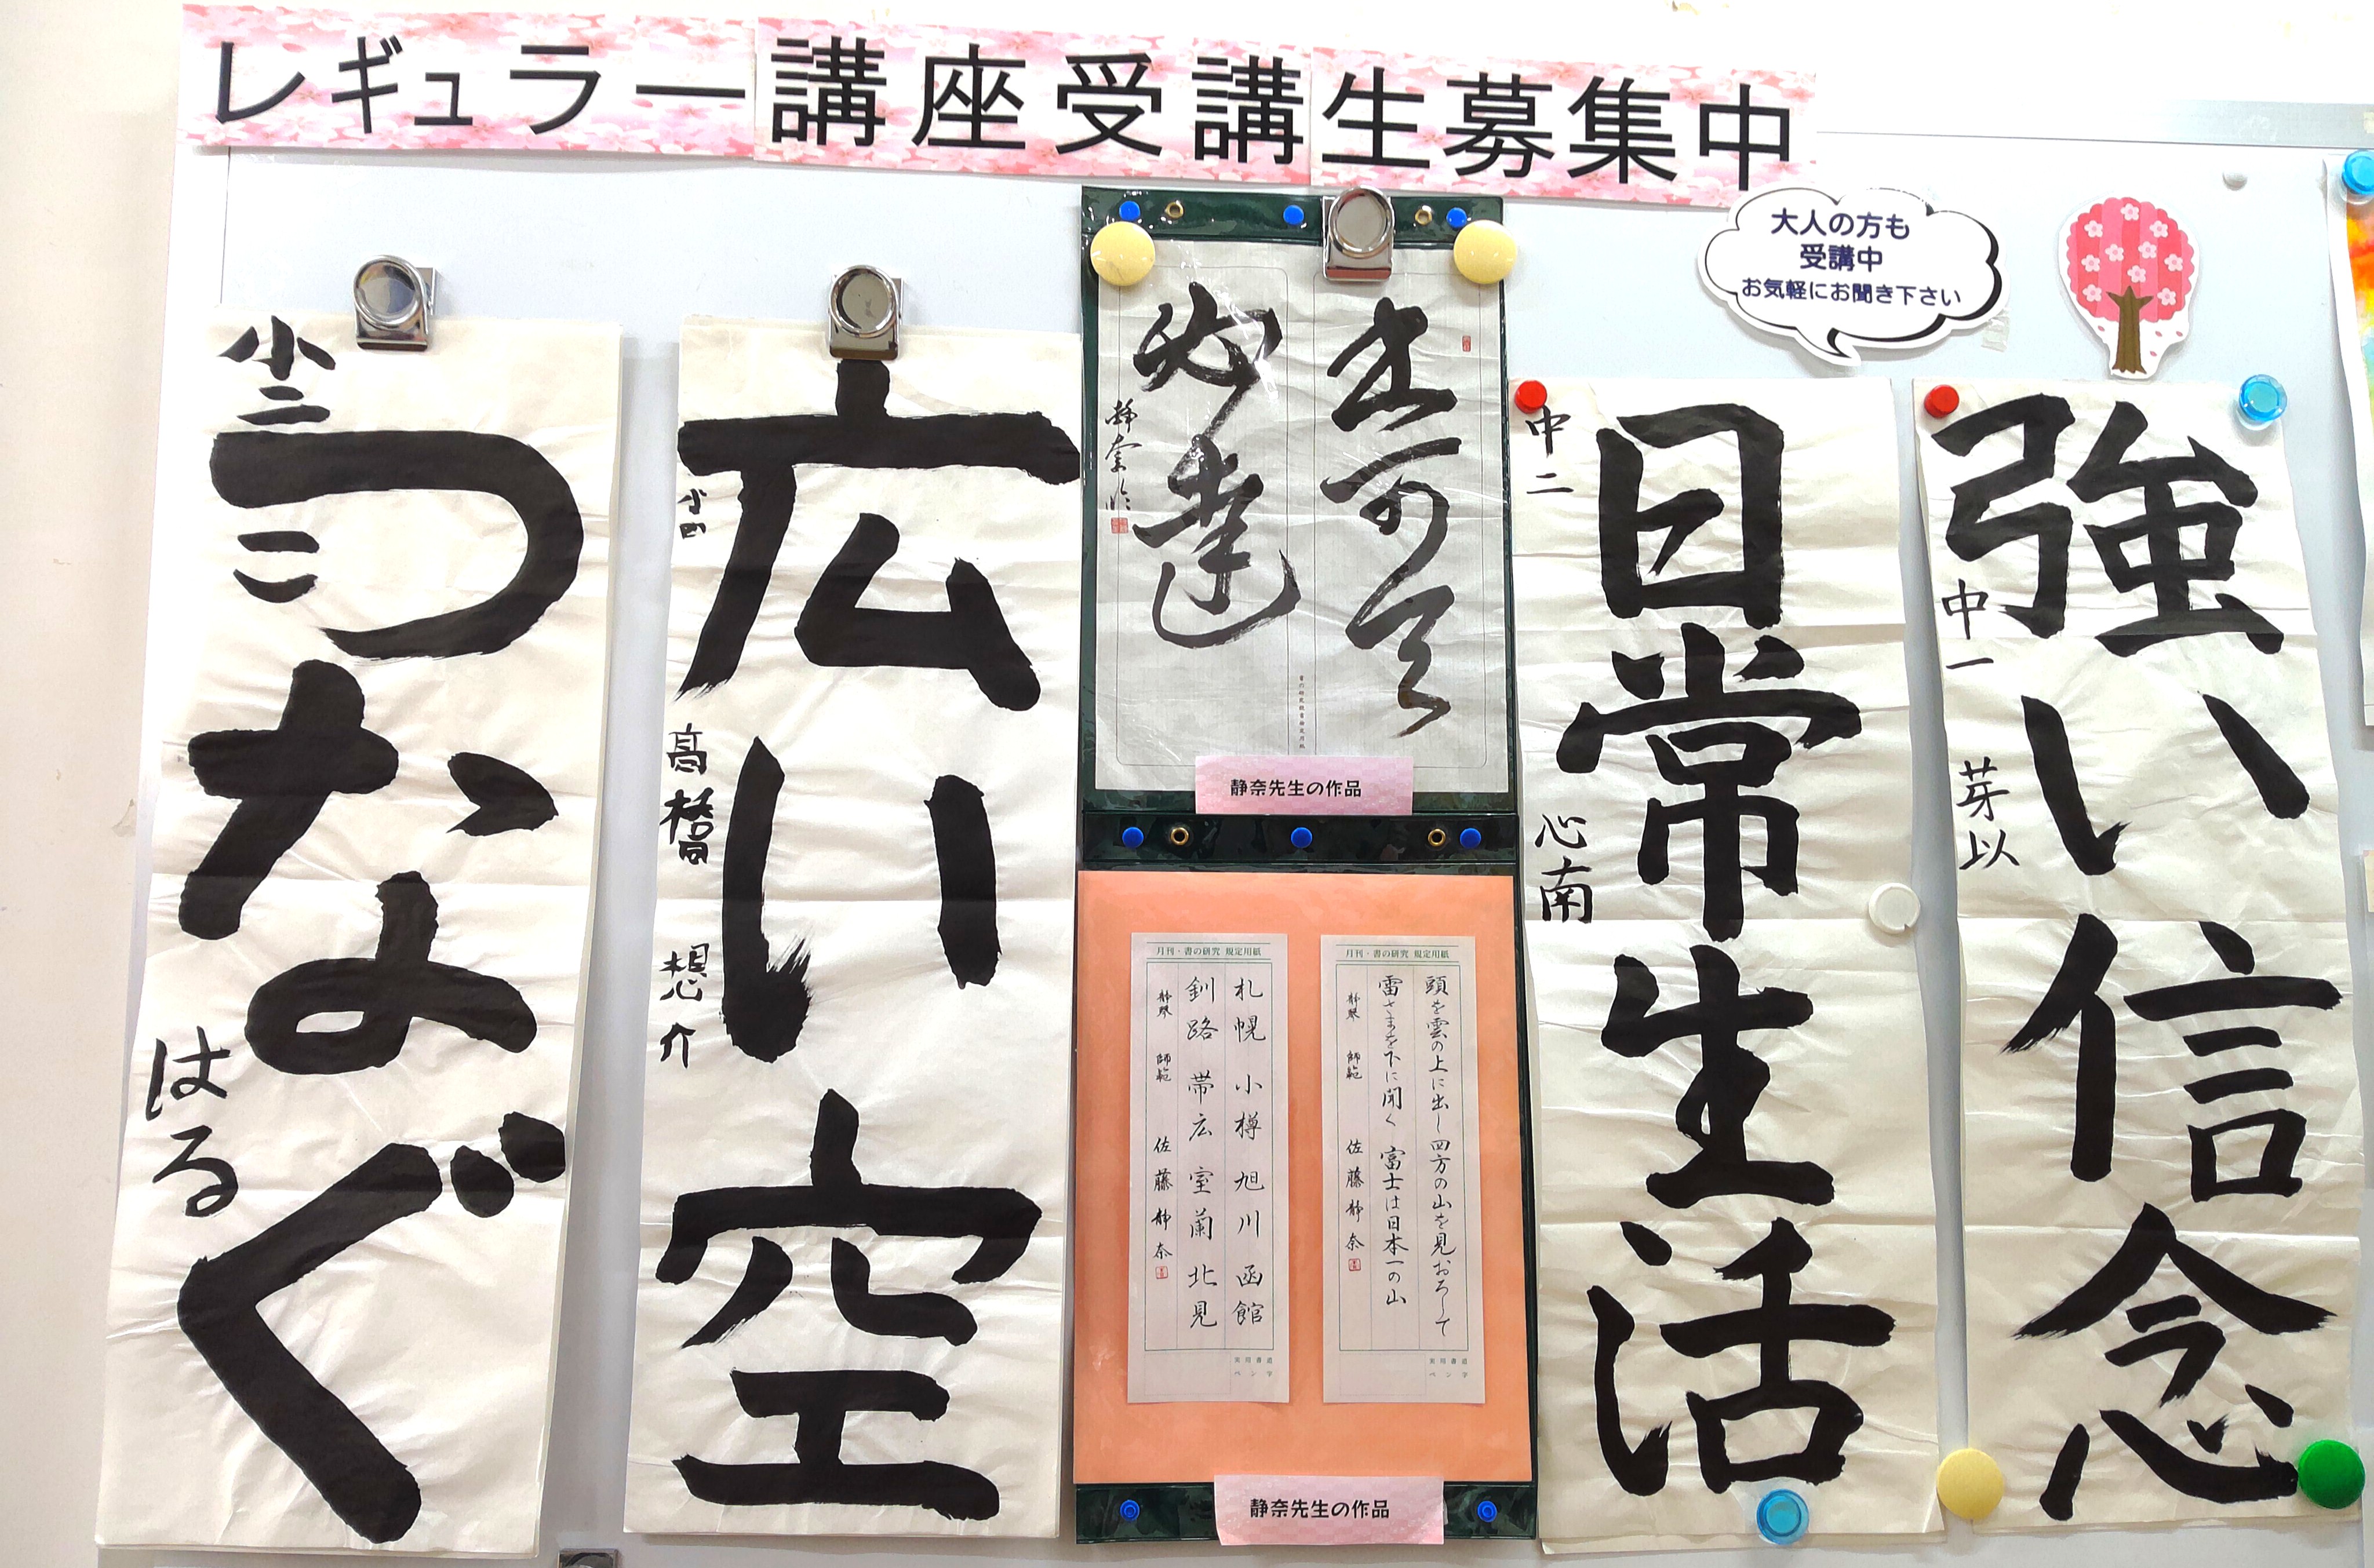 レギュラー講座受講生募集中
大人の方も
受講中
お気軽にお聞き下さい
強い信念
中一 芽以
日常生活
中二 心南
静奈先生の作品
頭を雲の上に出し 四方の山を見おろして
雷さまを下に聞く 富士は日本一の山
師範 佐藤静奈
月刊・書の研究 規定用紙
実用書道
ペン字
札幌 小樽 旭川 函館
釧路 帯広 室蘭 北見
師範 佐藤静奈
月刊・書の研究 規定用紙
実用書道
ペン字
静奈先生の作品
広い空
小四 高橋 想介
つなぐ
小二 はる